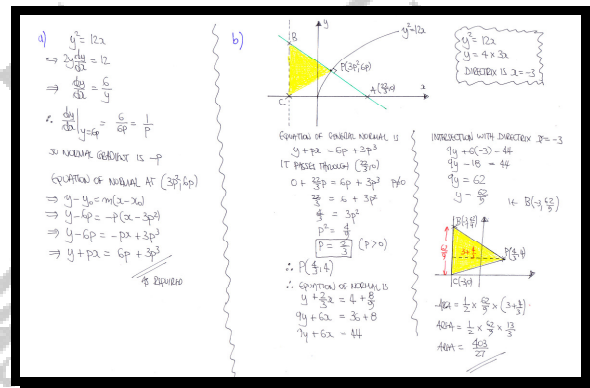 a) y² = 12x
⇒ 2y dy/dx = 12
⇒ dy/dx = 6/y
∴ dy/dx |y=6p = 6/6p = 1/p
SO NORMAL GRADIENT IS -p
EQUATION OF NORMAL AT (3p², 6p)
⇒ y - y₀ = m(x - x₀)
⇒ y - 6p = -p(x - 3p²)
⇒ y - 6p = -px + 3p³
⇒ y + px = 6p + 3p³
AS REQUIRED
b)
y
y² = 12x
B
P(3p², 6p)
A(22/3, 0)
x
C
y² = 12x
y = 4 × 3x
DIRECTRIX IS x = -3
EQUATION OF GENERAL NORMAL IS
y + px = 6p + 3p³
IT PASSES THROUGH (22/3, 0)
0 + 22/3 p = 6p + 3p³ p≠0
22/3 = 6 + 3p²
4/3 = 3p²
p² = 4/9
p = 2/3 (p > 0)
∴ P(4/3, 4)
∴ EQUATION OF NORMAL IS
y + 2/3 x = 4 + 8/9
9y + 6x = 36 + 8
9y + 6x = 44
INTERSECTION WITH DIRECTRIX x = -3
9y + 6(-3) = 44
9y - 18 = 44
9y = 62
y = 62/9
IE B(-3, 62/9)
B(-3, 62/9)
62/9
3 + 4/3
P(4/3, 4)
C(-3, 0)
AREA = 1/2 × 62/9 × (3 + 4/3)
AREA = 1/2 × 62/9 × 13/3
AREA = 403/27